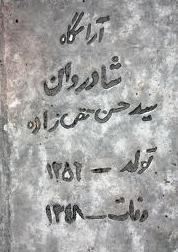 آرامگاه
شادروان
سید حسن تقی زاده
تولد - ۱۲۵۲
وفات - ۱۳۴۸